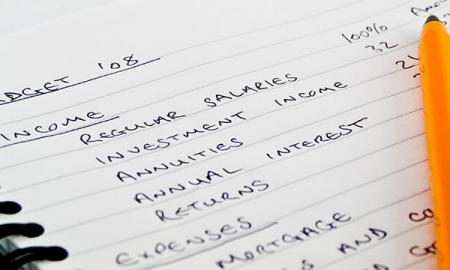 BUDGET '08
INCOME
REGULAR SALARIES 100%
INVESTMENT INCOME 32
ANNUITIES
ANNUAL INTEREST
RETURNS
EXPENSES
MORTGAGE
AND